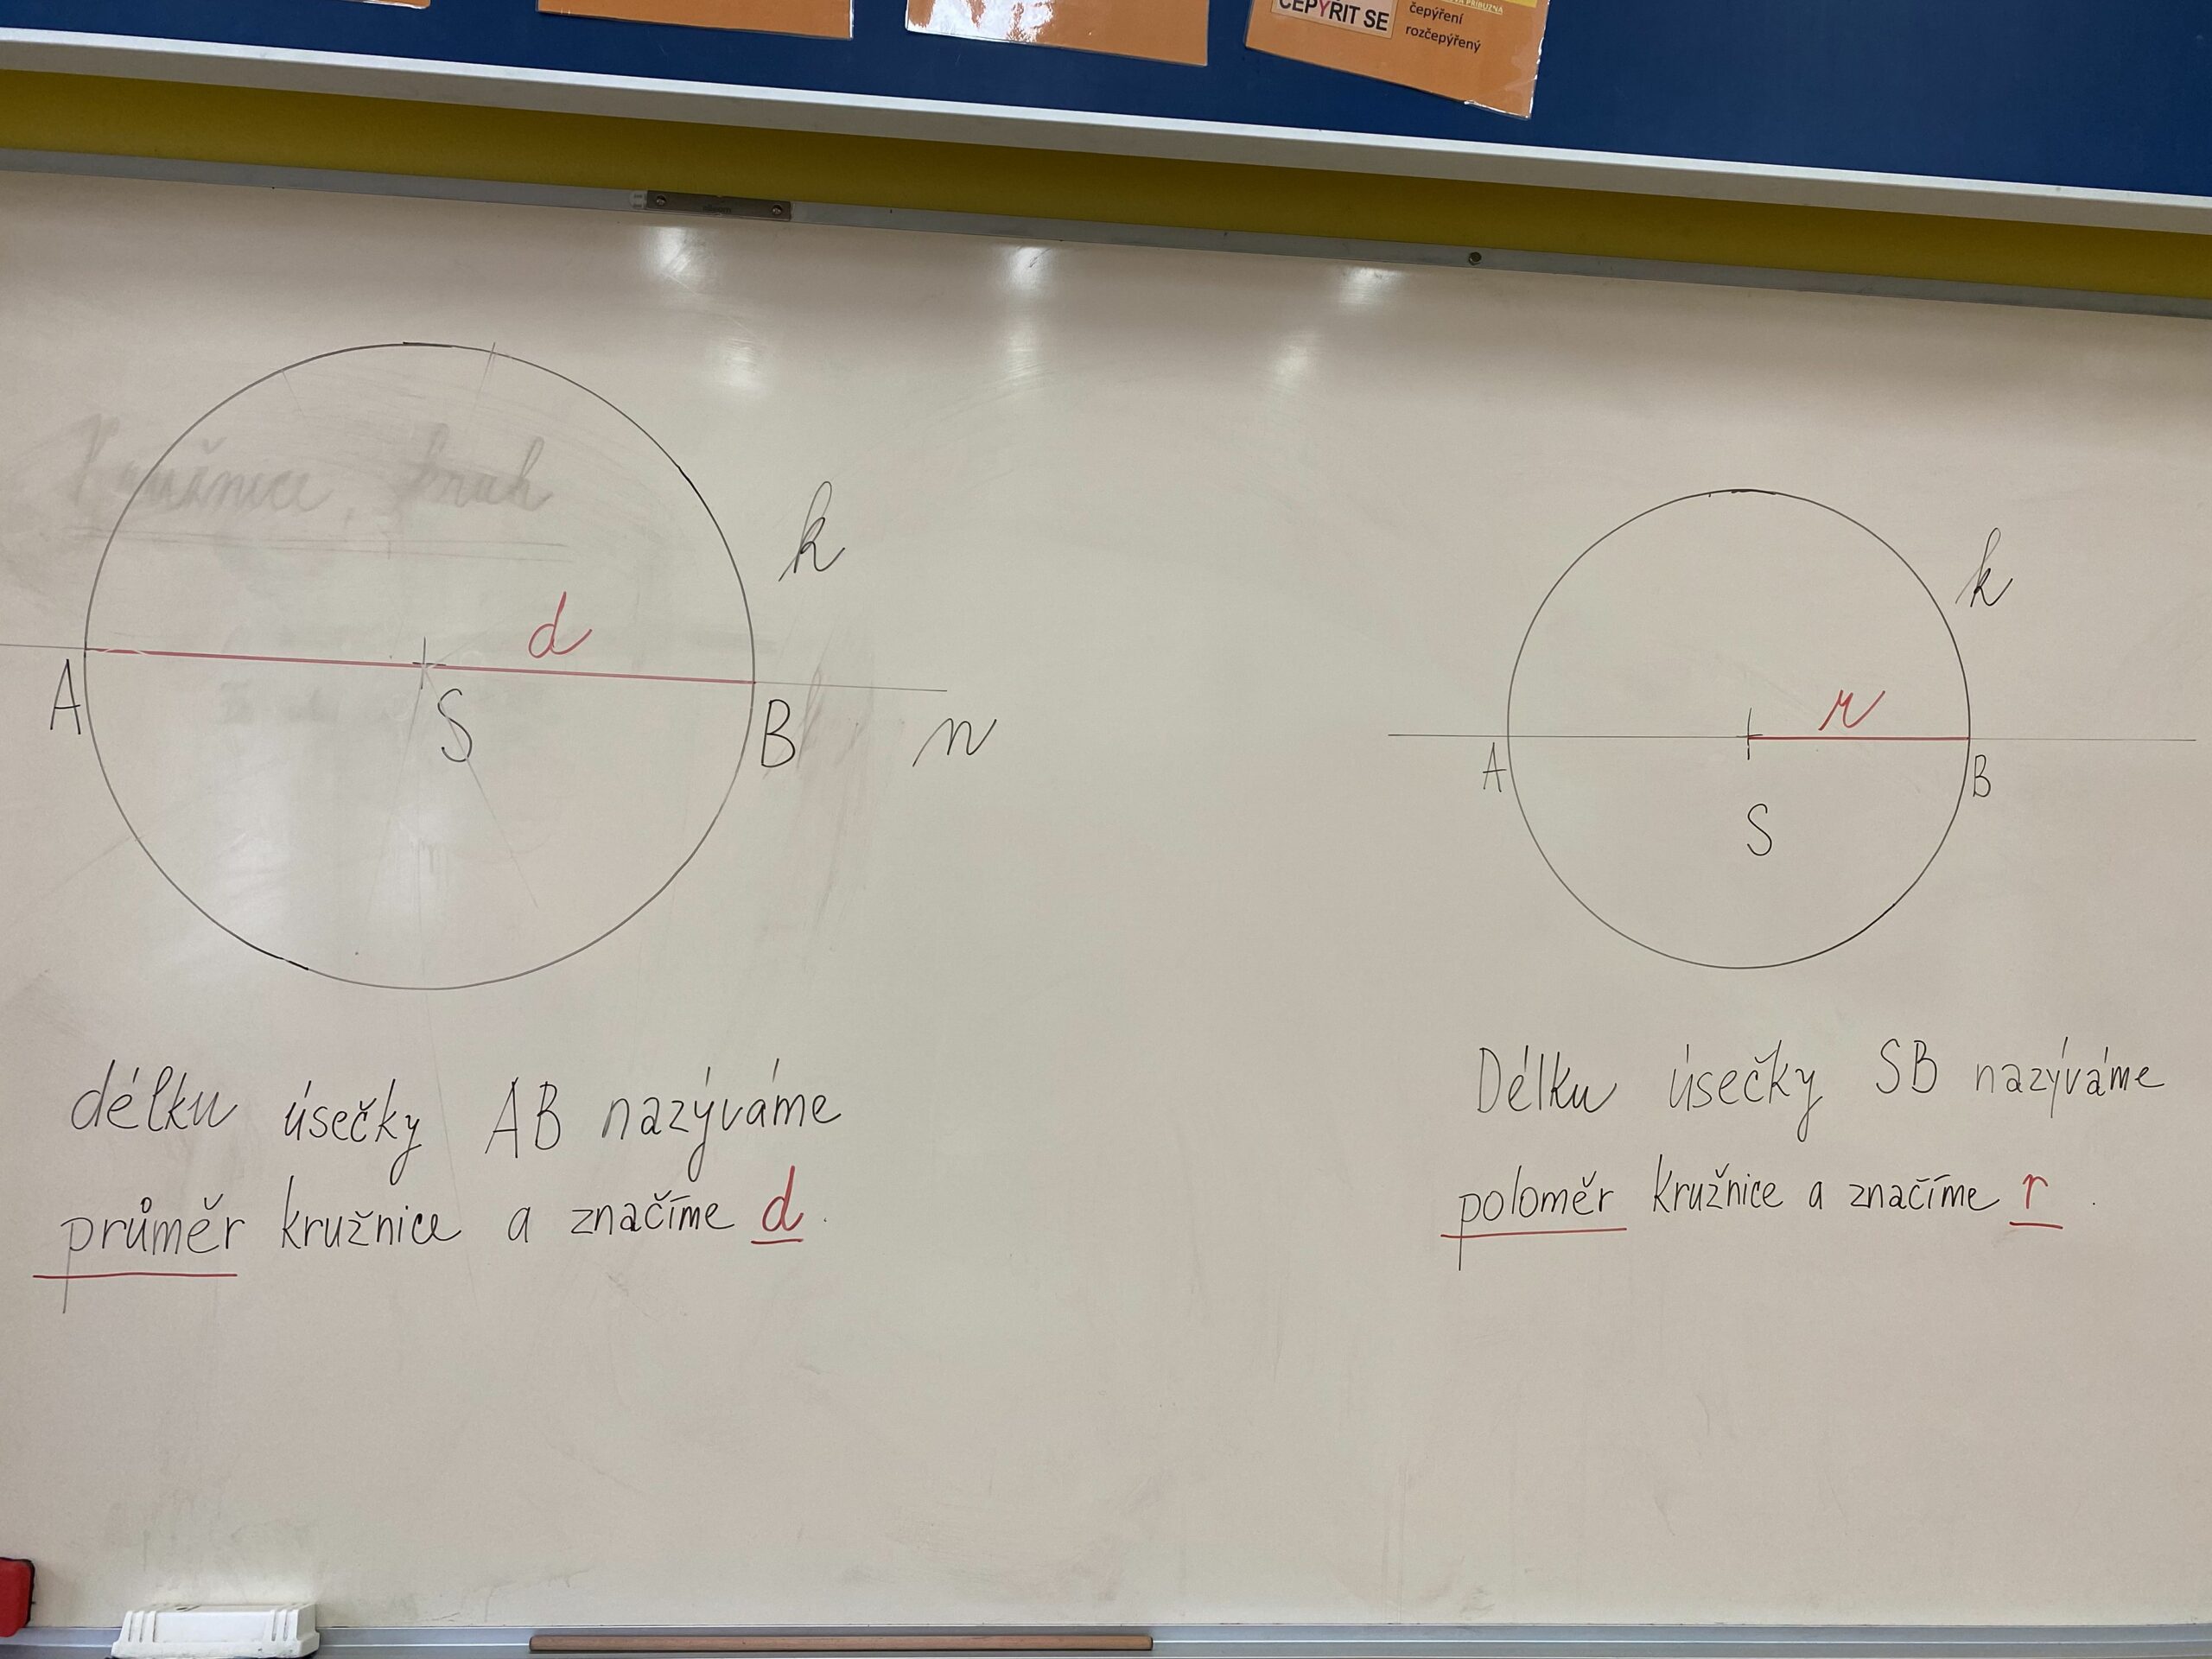 ČEPÝŘIT SE
čepýření
rozčepýřený
Kružnice, kruh
k
d
A
S
B
n
k
r
A
B
S
délku úsečky AB nazýváme
průměr kružnice a značíme d.
Délku úsečky SB nazýváme
poloměr kružnice a značíme r.